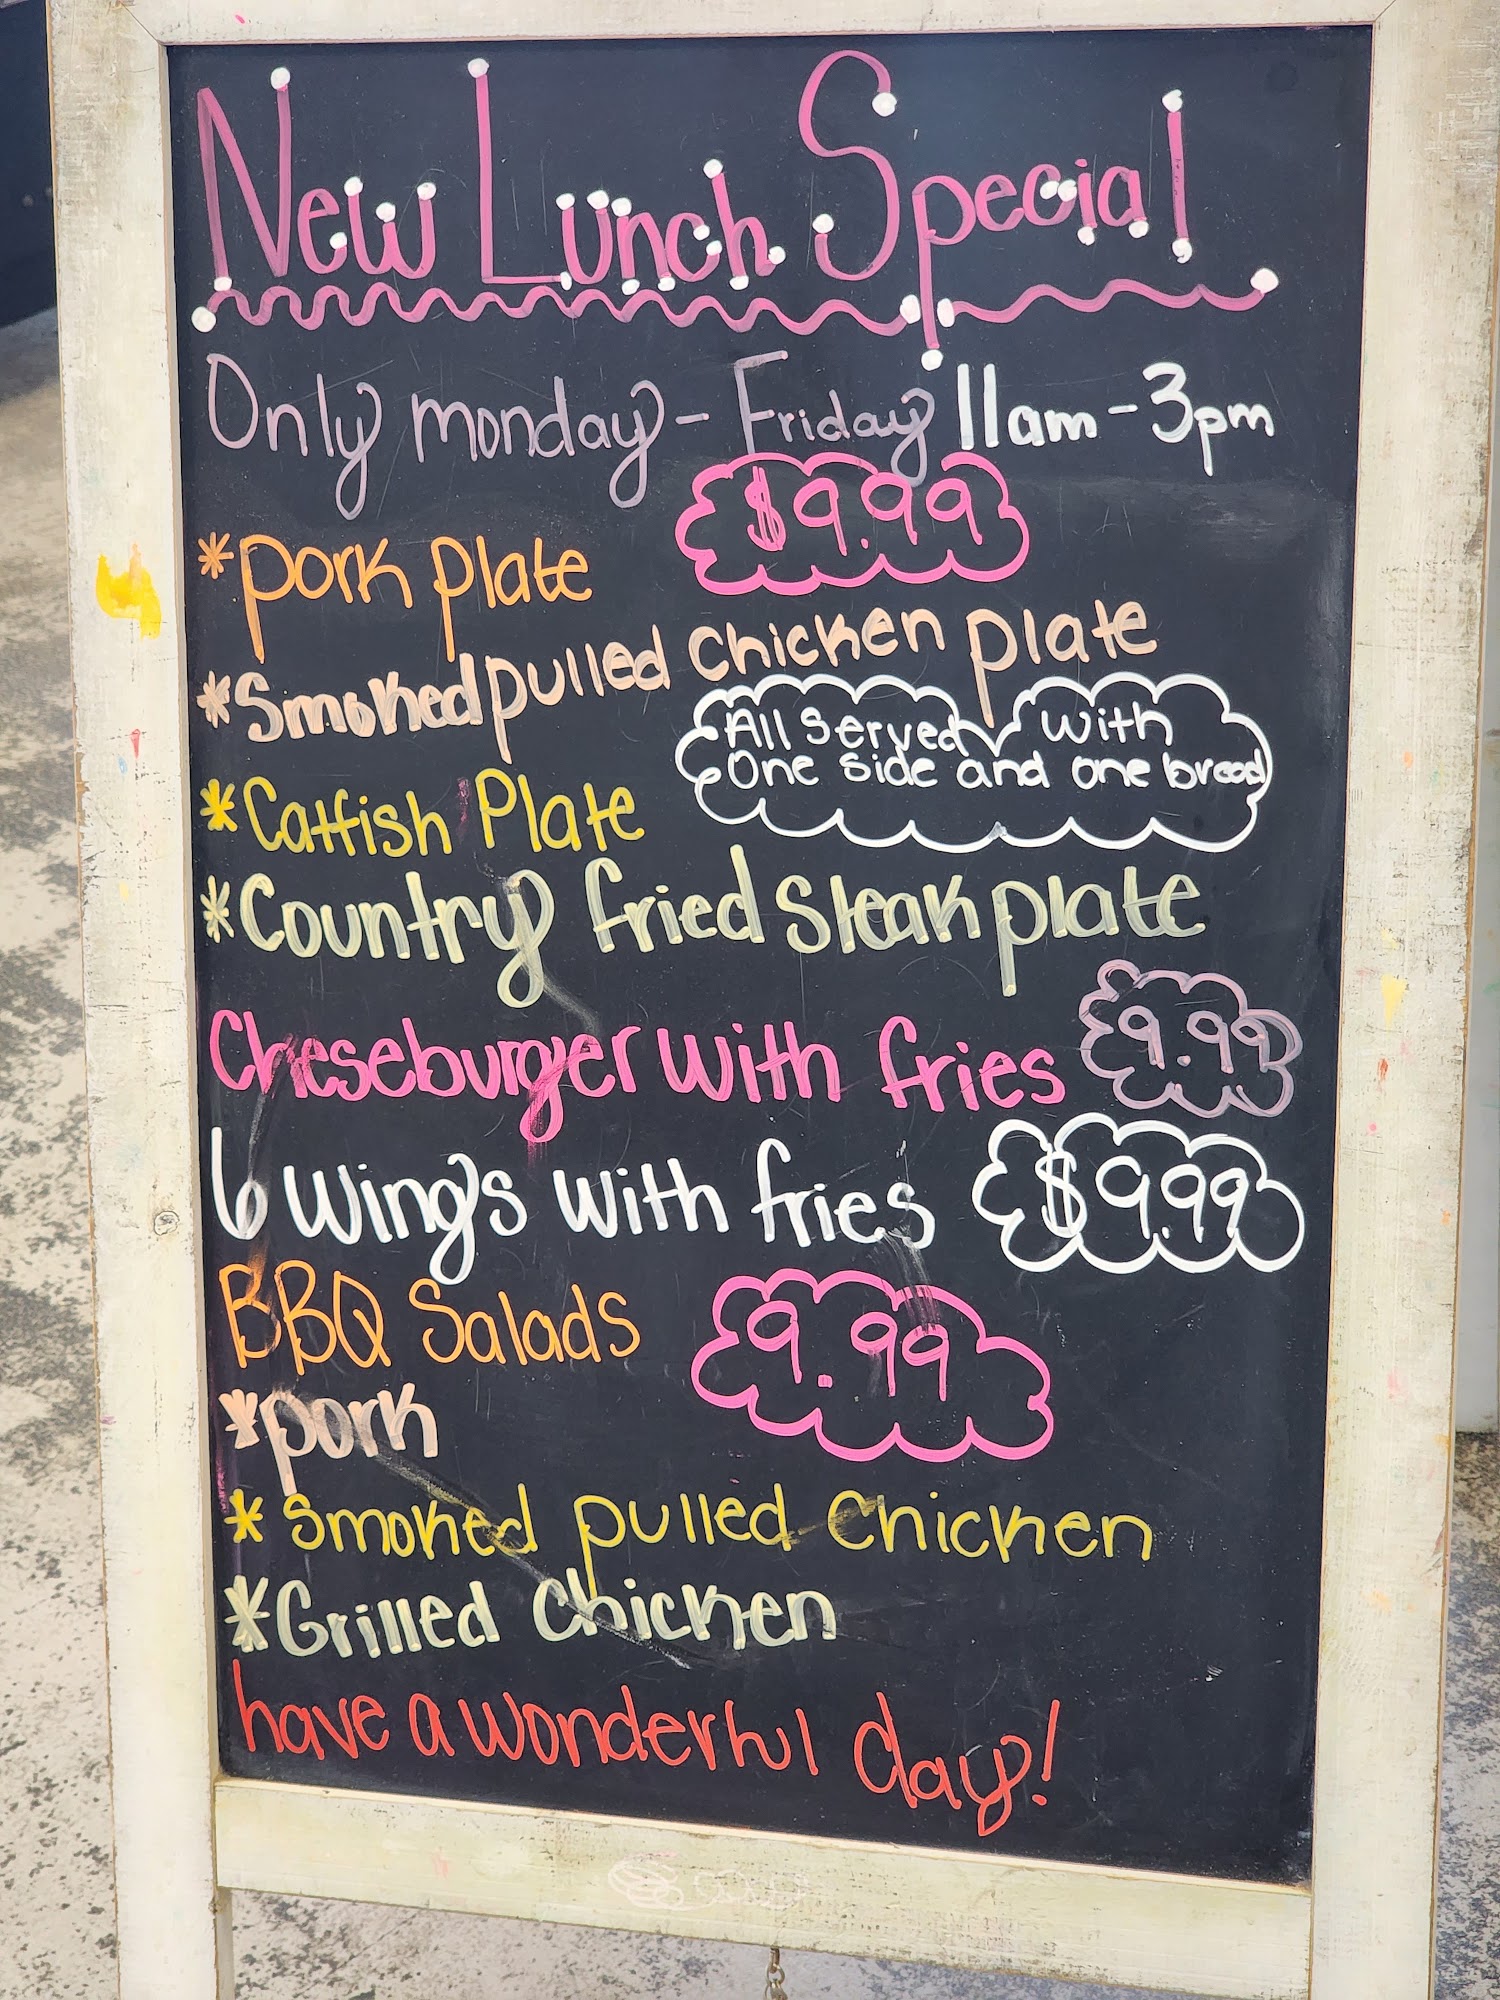 New Lunch Special
Only monday - Friday 11am - 3pm
$9.99
*Pork plate
*Smoked pulled chicken plate
All Served With
One side and one bread
*Catfish Plate
*Country fried steak plate
Cheseburger with fries 9.99
6 wings with fries $9.99
BBQ Salads 9.99
*pork
*Smoked pulled chicken
*Grilled chicken
have a wonderful day!